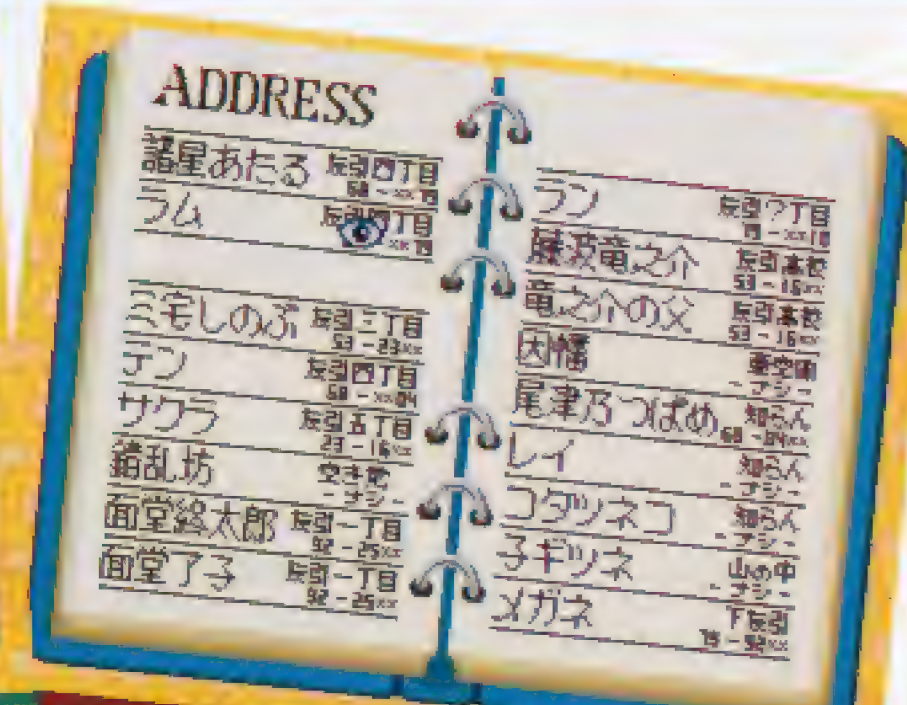 ADDRESS
諸星あたる 友引四丁目
ラム 友引四丁目
三宅しのぶ 友引二丁目
53-23××
テン 友引四丁目
サクラ 友引五丁目
23-16××
錯乱坊 空き地
-ナシ-
面堂終太郎 友引一丁目
92-25××
面堂了子 友引一丁目
92-25××
ラン 友引?丁目
藤波竜之介 友引高校
53-16××
竜之介の父 友引高校
53-16××
因幡 亜空間
-ナシ-
尾津乃つばめ 知らん
レイ 知らん
-ナシ-
コタツネコ 知らん
-ナシ-
子ギツネ 山の中
-ナシ-
メガネ 下友引